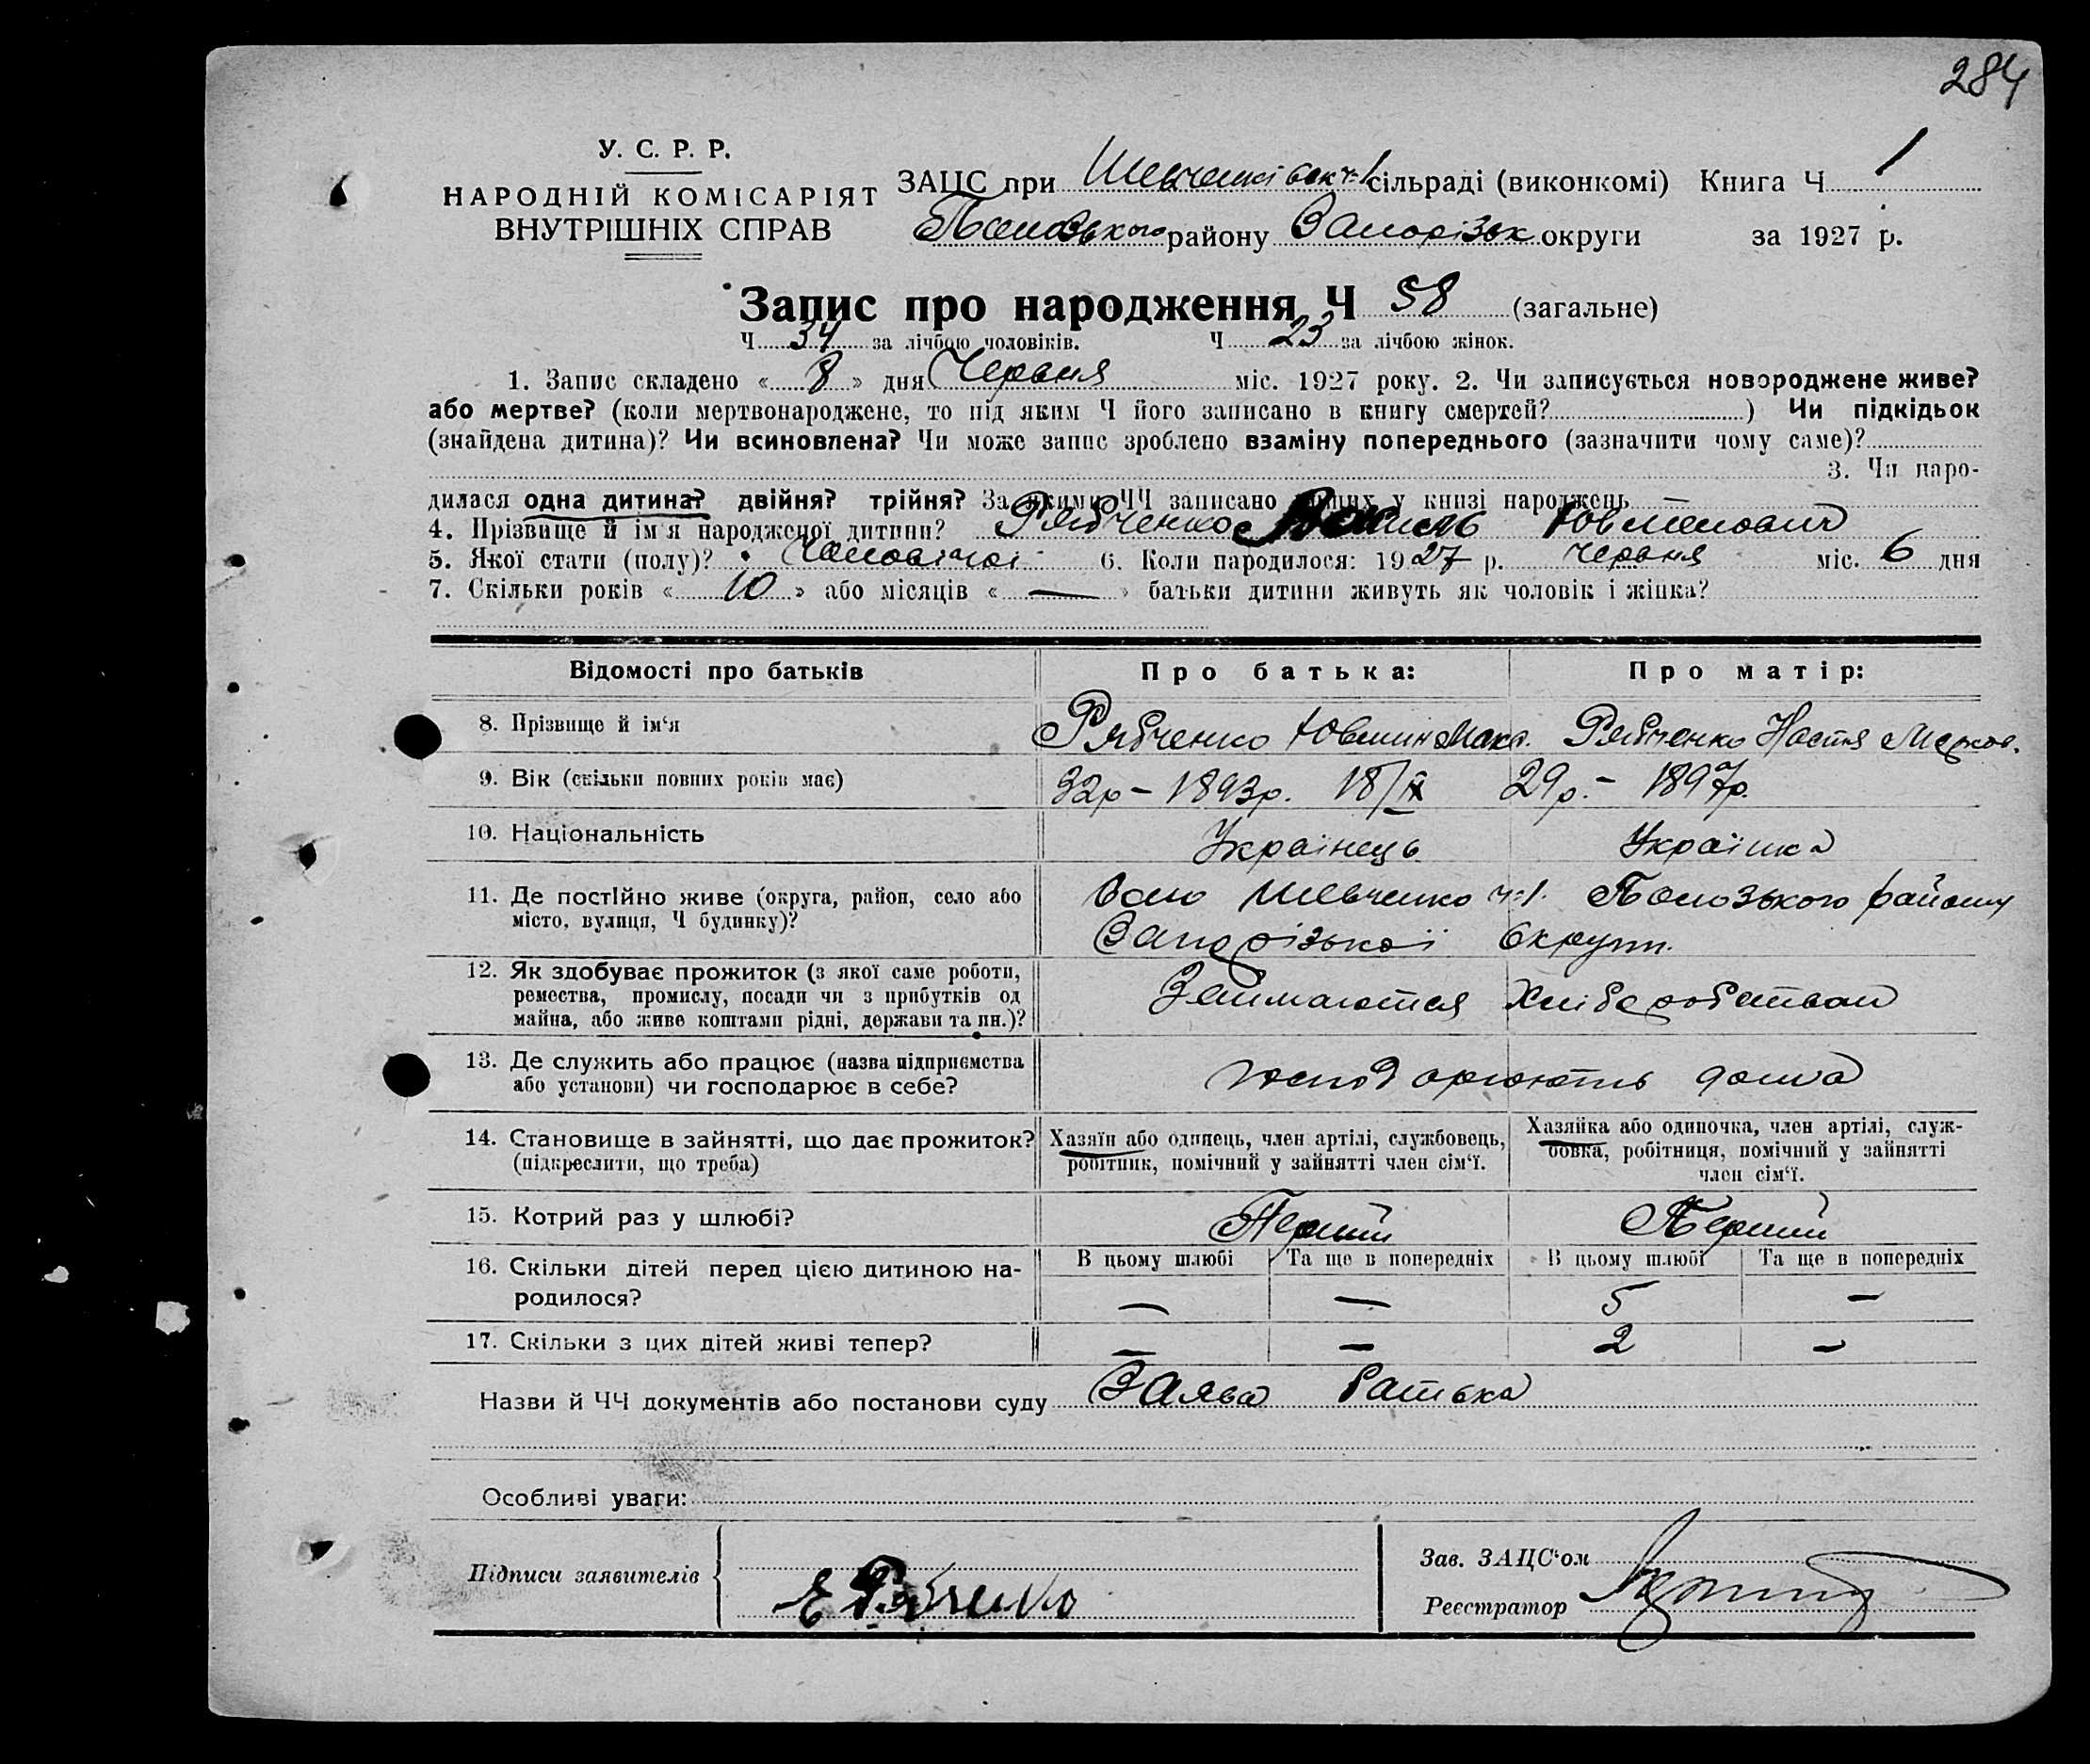 284
У. С. Р. Р.
НАРОДНІЙ КОМІСАРІЯТ
ВНУТРІШНІХ СПРАВ
ЗАЦС при Шевченківськ. ч. 1 сільраді (виконкомі) Книга Ч 1
Пологівського району Запорізьк округи за 1927 р.
Запис про народження Ч 58 (загальне)
Ч 34 за лічбою чоловіків. Ч 23 за лічбою жінок.
1. Запис складено « 8 » дня Червня міс. 1927 року. 2. Чи записується новороджене живе?
або мертве? (коли мертвонароджене, то під яким Ч його записано в книгу смертей? ) Чи підкідьок
(знайдена дитина)? Чи всиновлена? Чи може запис зроблено взаміну попереднього (зазначити чому саме)?
3. Чи наро-
дилася одна дитина? двійня? трійня? За якими ЧЧ записано інших у книзі народжень
4. Прізвище й ім'я народженої дитини? Рябченко Василь
5. Якої стати (полу)? Чоловічої 6. Коли народилося: 1927 р. червня міс. 6 дня
7. Скільки років « 10 » або місяців « — » батьки дитини живуть як чоловік і жінка?
Відомості про батьків Про батька: Про матір:
8. Прізвище й ім‘я Рябченко Рябченко Настя
9. Вік (скільки повних років має) 32р – 1893р. 29р. – 1897р.
10. Національність Українець Українка
11. Де постійно живе (округа, район, село або Село Шевченко ч. 1. району
місто, вулиця, Ч будинку)? Запорізької Округи.
12. Як здобуває прожиток (з якої саме роботи, Займаются Хліборобством
ремества, промислу, посади чи з прибутків од
майна, або живе коштами рідні, держави та ин.)?
13. Де служить або працює (назва підприємства господарюють дома
або установи) чи господарює в себе?
14. Становище в зайнятті, що дає прожиток? Хазяїн або одинець, член артілі, службовець, Хазяйка або одиночка, член артілі, служ-
(підкреслити, що треба) робітник, помічний у зайнятті член сім‘ї. бовка, робітниця, помічний у зайнятті
член сім‘ї.
15. Котрий раз у шлюбі? Перший Перший
16. Скільки дітей перед цією дитиною на- В цьому шлюбі Та ще в попередніх В цьому шлюбі Та ще в попередніх
родилося? — — 5 —
17. Скільки з цих дітей живі тепер? — — 2 —
Назви й ЧЧ документів або постанови суду Заява батька
Особливі уваги:
Підписи заявителів Е Рябченко
Зав. ЗАЦС‘ом
Реєстратор